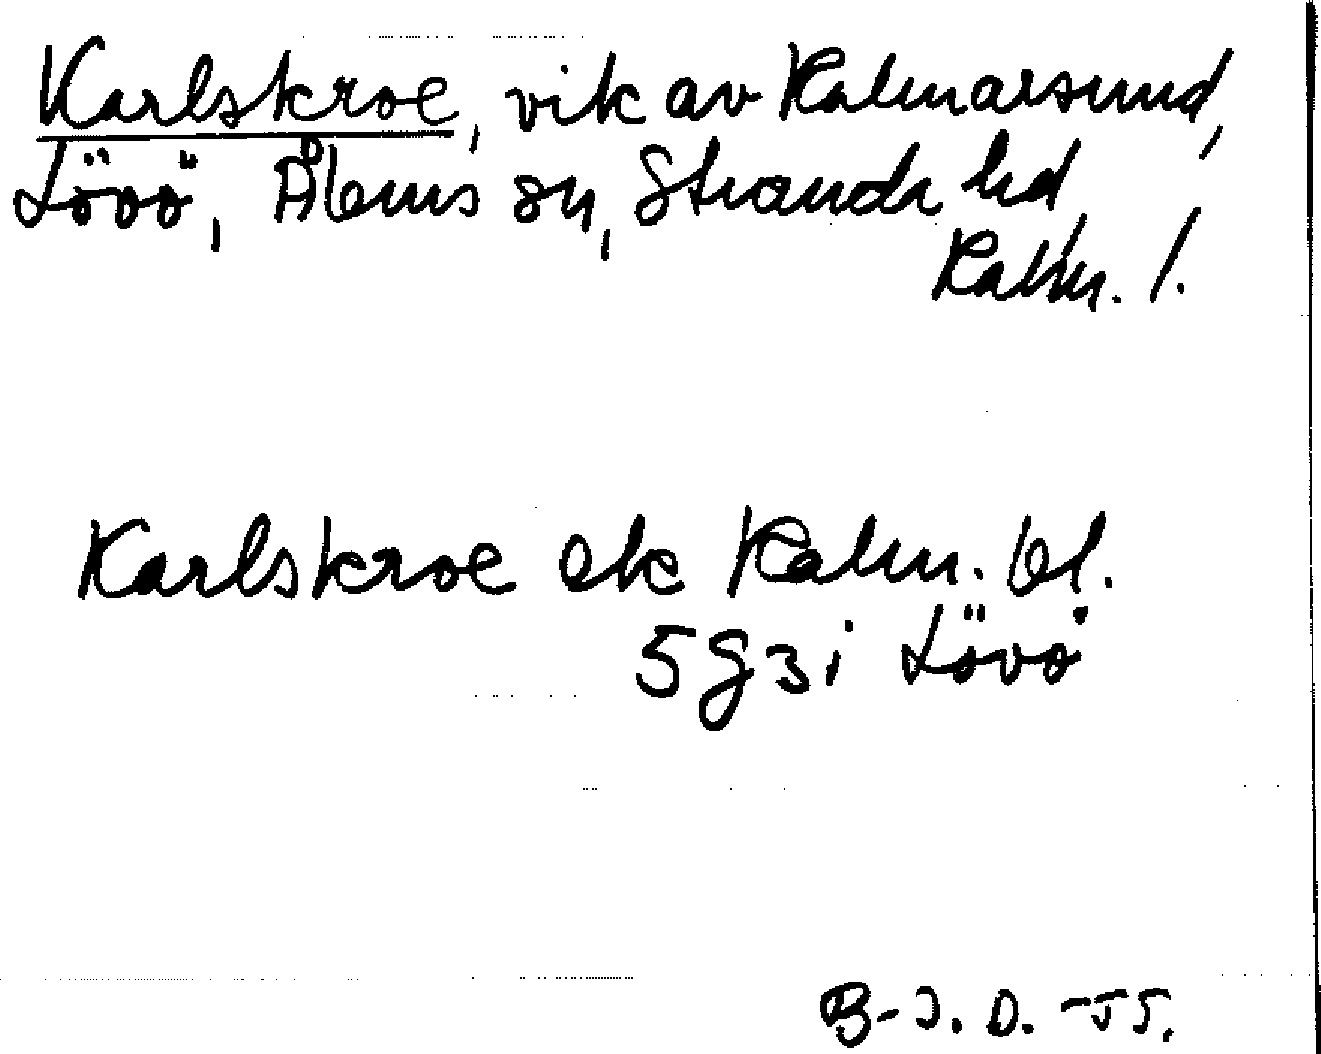 Karlskroe, vik av Kalmarsund,
Lövö, Ålems sn, Strands hd,
Kalm. l.
Karlskroe ek Kalm. bl.
5 g 3 i Lövö
B-J. D. -55.